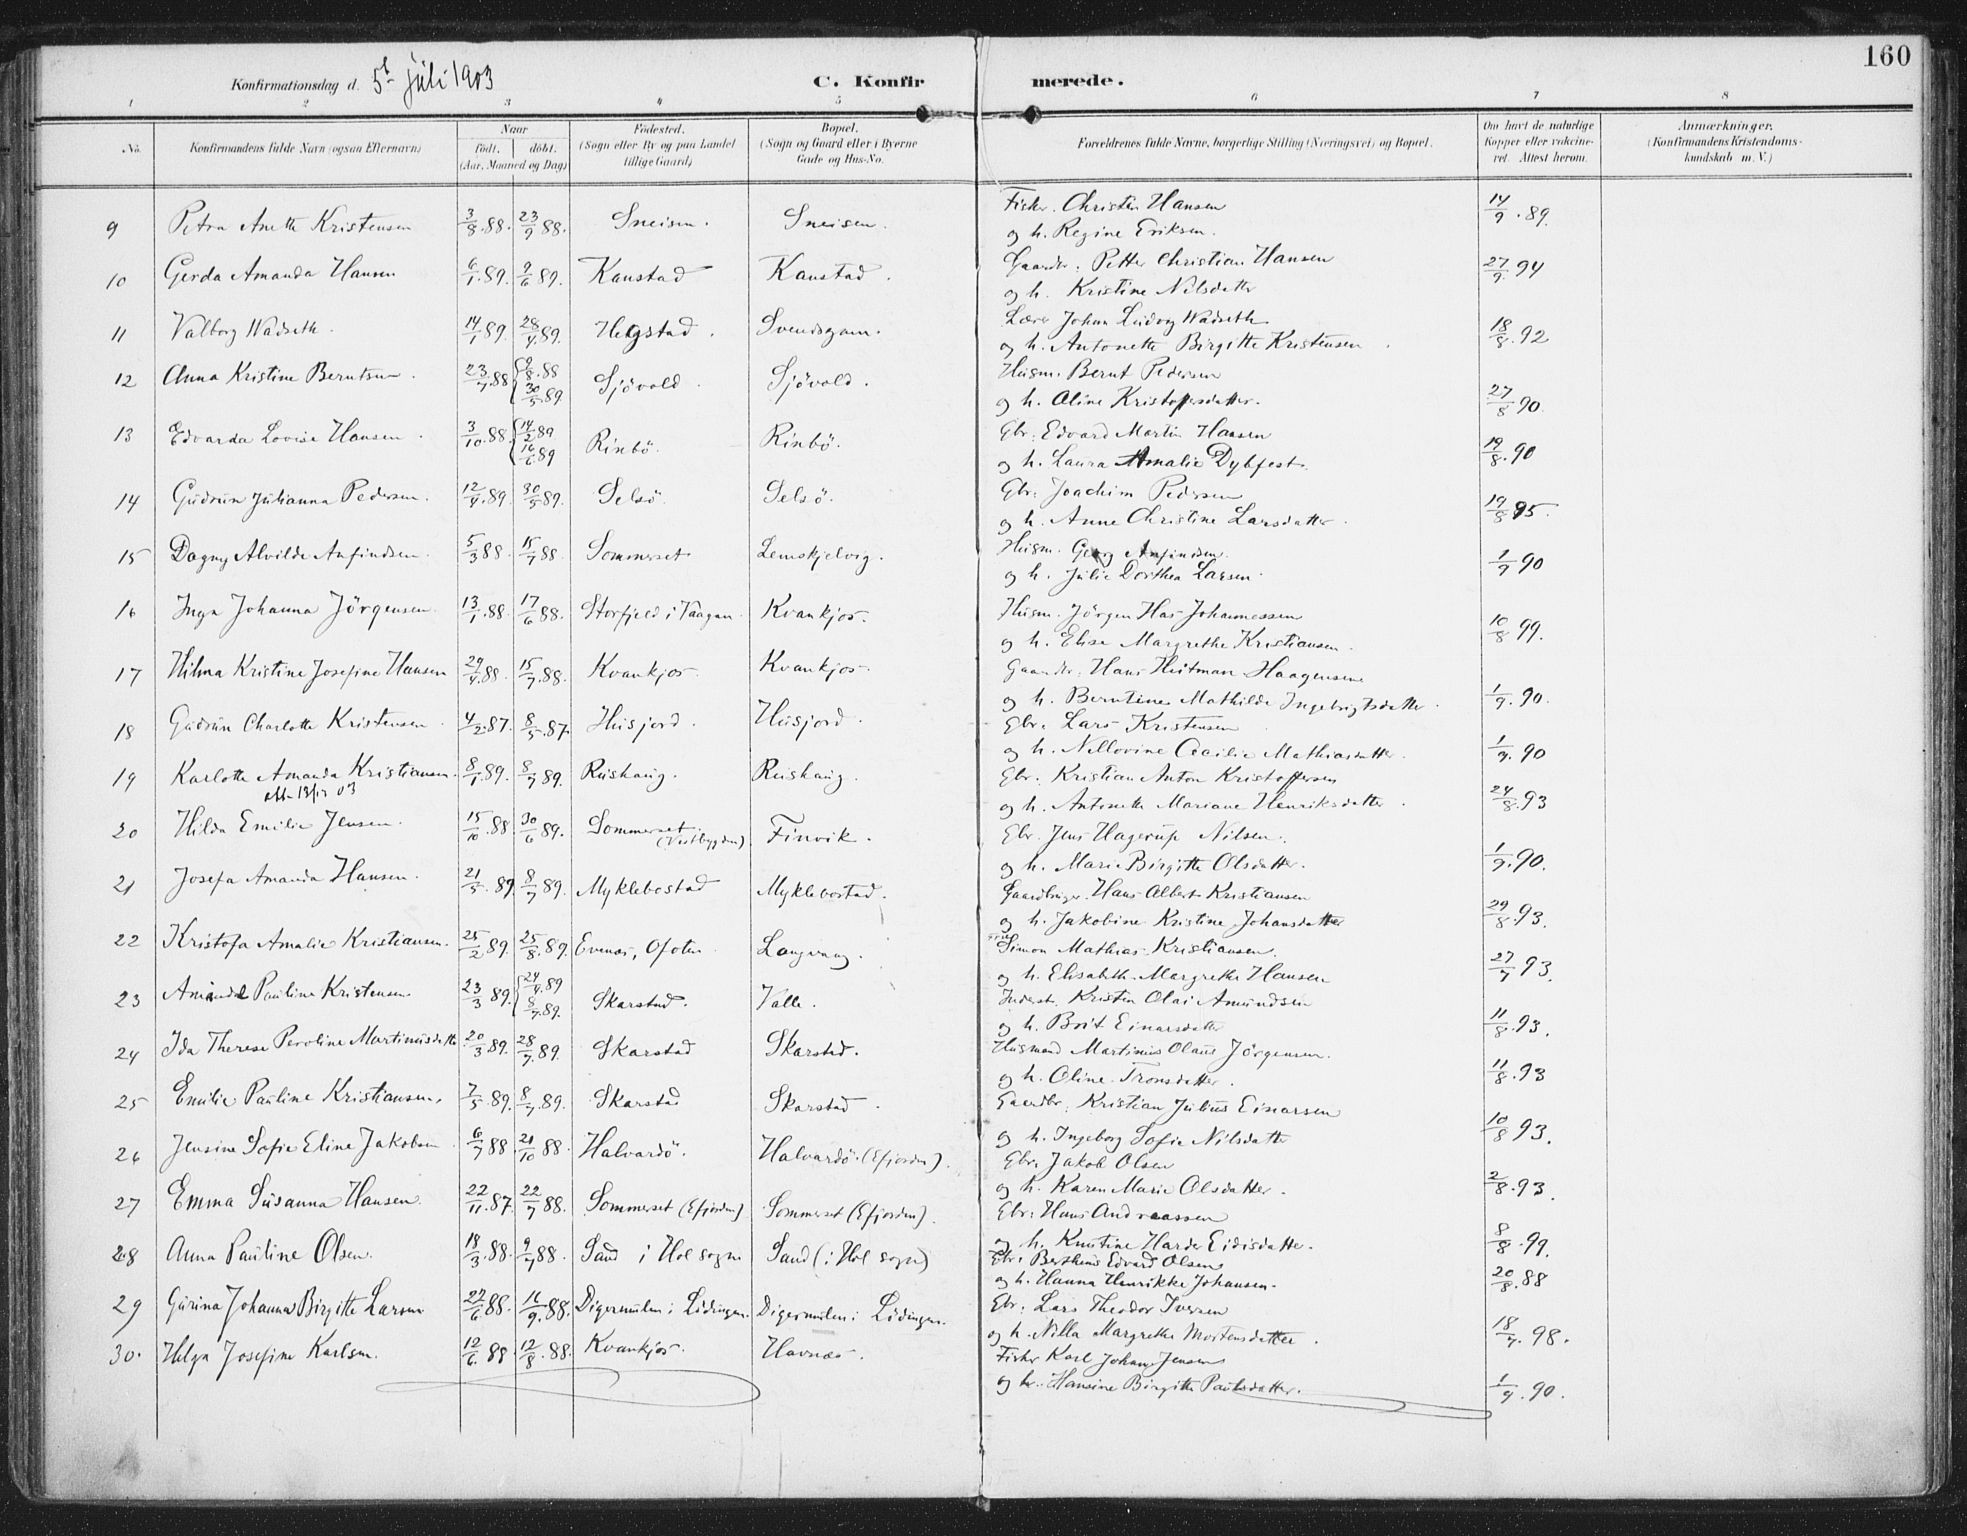 160
Konfirmationsdag d. 5t juli 1903 C. Konfirmerede.
1 2 3 4 5 6 7 8
No. Konfirmandens fulde Navn (ogsaa Efternavn) Naar født. døbt. (Aar, Maaned og Dag) Fødested. (Sogn eller By og paa Landet tillige Gaard) Bopæl. (Sogn og Gaard eller i Byerne Gade og Hus-No. Forældrenes fulde Navne, borgerlige Stilling (Næringsvei) og Bopæl. Om havt de naturlige Kopper eller vakcineret. Attest herom. Anmærkninger. (Konfirmandens Kristendomskundskab m. V.)
9 Petra Anette Kristensen 3/8.88. 23/9 88. Sneisen. Sneisen. Fisker. Christen Hansen
og h. Regine Eriksen. 14/9.89.
10 Gerda Amanda Hansen 6/1.89. 9/6 89. Kanstad Kanstad. Gaardbr. Petter Christian Hansen
og h. Kristine Nilsdatter 27/9.94
11 Valborg Wadseth. 14/1 89. 28/4.89. Hegstad. Svendsgam. Lærer Johan Ludvig Wadseth
og h. Antonette Birgitte Kristensen. 18/8.92
12 Anna Kristine Berntsen. 23/7.88 9/8.88 30/5.89. Sjövold. Sjövold. Husm. Bernt Pedersen
og h. Oline Kristoffersdatter. 27/8 90.
13 Edvarda Lovise Hansen. 3/10.88. 14/2 89 16/6 89 Rinbö. Rinbö. Gbr: Edvard Martin Hansen
og h. Laura Amalie Dybfest. 19/8.90
14 Gudrun Julianna Pedersen. 12/4.89. 30/5 89. Selsö. Selsö. Gbr: Joachim Pedersen
og h. Anne Christine Larsdatter. 19/8 95.
15 Dagny Alvilde Anfindsen. 5/3 88. 15/7 88. Sommerset Lemskjelvig. Husm. Georg Anfindsen.
og h. Julie Dorthea Larsen. 1/9 90
16 Inga Johanna Jörgensen. 13/1.88. 17/6 88. Storfjeld i Vaagan. Kvankjos. Husm. Jörgen Has Johannessen
og h. Elise Margrethe Kristiansen. 10/8 99.
17 Hilma Kristine Josefine Hansen 29/4.88. 15/7.88. Kvankjos Kvankjos. Gaardbr. Hans Hutman Haagensen
og h. Berntine Mathilde Ingebrigtsdatter. 1/9.90.
18 Gudrun Charlotte Kristensen. 4/2.87. 8/5.87. Husjord. Husjord. Gbr. Lars Kristensen
og h. Nellovine Cecilie Mathiasdatter. 1/9.90
19 Karlotte Amanda Kristiansen. 8/1.89. 8/7 89. Rushaug. Rushaug. Gbr. Kristian Anton Kristoffersen
og h. Antonette Mariane Henriksdatter. 24/8.93
att 13/12 03
20 Hilda Emilie Jensen. 15/10.88 30/6 89. Sommerset (Vestbygden) Finvik. Gbr. Jens Hagerup Nilsen.
og h. Marie Birgitte Olsdatter. 1/9.90.
21 Josefa Amanda Hansen. 21/5.89. 8/7 89. Myklebostad Myklebostad. Gaardbruger Hans Albert Kristiansen
og h. Jakobine Kristine Johansdatter 29/8 93.
22 Kristofa Amalie Kristiansen. 25/2 89. 25/8.89. Evenes, Ofoten Langvaag. Simon Mathias Kristiansen.
og h. Elisabeth Margrethe Hansen 27/7 93.
23 Amanda Pauline Kristensen 23/3 89. 24/4.89 8/7.89. Skarstad. Valle. Inderst. Kristen Olai Amundsen
og h. Brit Einarsdatter 11/8.93.
24 Ida Therese Peroline Martinusdatter 20/3 89. 28/7.89. Skarstad Skarstad. Husmand Martinus Olaus Jörgensen.
og h. Oline Tronsdatter. 11/8.93
25 Emilie Pauline Kristiansen. 7/5.89. 8/7 89. Skarstad Skarstad. Gaardbr. Kristian Julius Einarsen
og h. Ingeborg Sofie Nilsdatter 10/8 93.
26 Jensine Sofie Eline Jakobsen. 6/7 88. 21/10 88. Halvardö. Halvardö. (Efjorden). Gbr. Jakob Olsen
og h. Karen Marie Olsdatter. 2/8.93.
27 Emma Susanna Hansen 22/11.87. 22/7 88. Sommerset (Efjorden) Sommerset (Efjorden). Gbr: Hans Andreassen
og h. Knutine Harde Eidisdatter. 8/8.99.
28 Anna Pauline Olsen. 18/3.88. 9/7 88. Sand i Hol sogn Sand (i Hol sogn) Gbr. Bertheus Edvard Olsen
og h. Hanna Henrikke Johansen. 20/8.88
29 Gurina Johanna Birgitte Larsen 22/6.88. 16/9.88. Digermulen i Lödingen. Digermulen i Lödingen. Gbr: Lars Theodor Iversen
og h. Nilla Margrethe Mortensdatter. 18/7.98.
30. Helga Josefine Karlsen. 12/6.88. 12/8.88. Kvankjos. Havnæs. Fisker Karl Johan Jensen
og h. Hansine Birgitte Paulsdatter. 1/9.90.